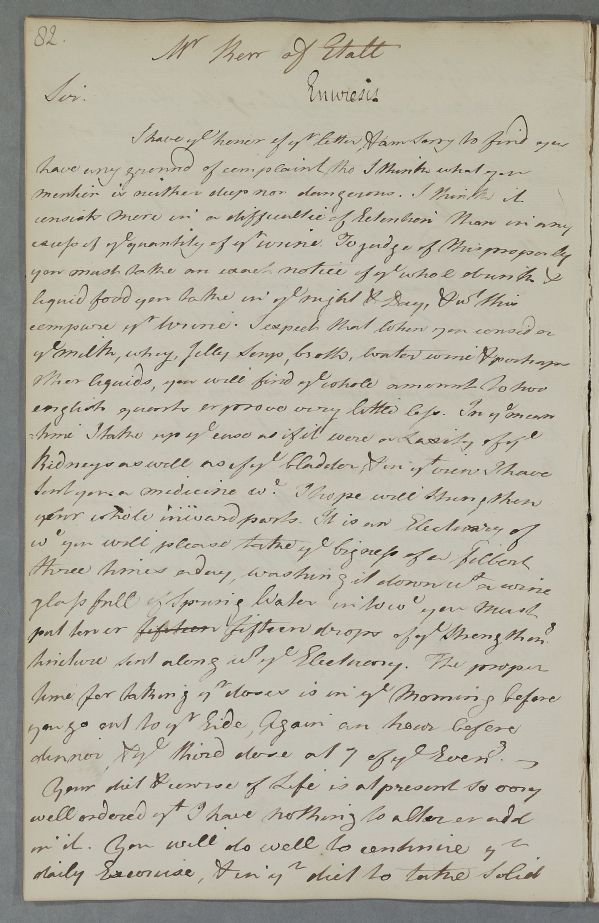 82.
Mr Kerr of Etall
Sir. Enuresis
I have ye honor of yr letter & am Sorry to find you
have any ground of complaint, tho I think what you
mention is neither deep nor dangerous. I think it
consists more in a difficultie of Retention than in any
excess of ye quantity of yr urine To judge of this properly
you must take an exact notice of ye whole drink &
liquid food you take in ye night & Day, & wt this
compare yr Urine. I expect that when you consider
ye milk, whey, Jelly Soup, broth, water wine & perhaps
other liquids, you will find ye whole amount to two
english quarts or prove very little less. In ye mean
-time I take up ye case as if it were a Laxity of ye
Kidneys as well as of ye bladder, & in yt view I have
Sent you a medicine wc I hope will strengthen
your whole inward parts. It is an Electuary of
wc you will please take ye bigness of a filbert
three times a day, washing it down wt a wine
glass full of Spring Water into wc you must
put ten or fifteen fifteen drops of ye Strengtheng
tincture sent along wt ye Electuary. The proper
time for taking yr doses is in ye Morning before
you go out to yr Ride, Again an hour before
dinner, & ye third dose at 7 of ye Eveng.
Your diet & course of Life is at present so very
well ordered yt I have nothing to alter or add
in it. You will do well to continue yr
daily Exercise, & in yr diet to take Solid